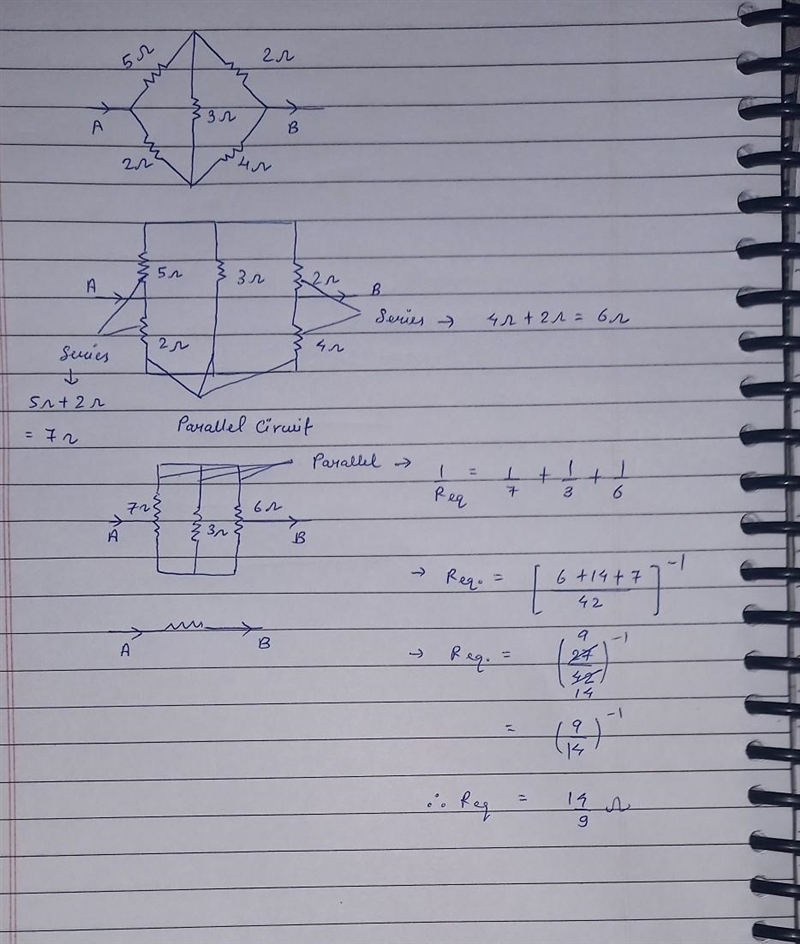 5Ω 2Ω
A 3Ω B
2Ω 4Ω
A 5Ω 3Ω 2Ω B
Series → 4Ω + 2Ω = 6Ω
2Ω 4Ω
Series
↓
5Ω + 2Ω
= 7Ω
Parallel Circuit
Parallel → 1/Req = 1/7 + 1/3 + 1/6
7Ω 6Ω
A 3Ω B
→ Req. = [6 + 14 + 7 / 42]^-1
A B
→ Req. = (9 27 / 42 14)^-1
= (9/14)^-1
∴ Req = 14/9 Ω